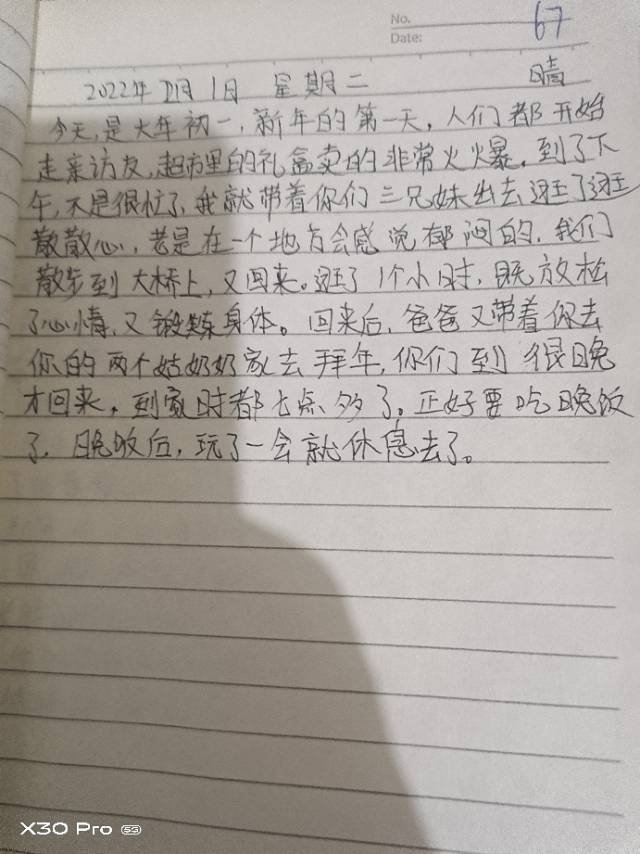 No. 67
Date:
2022年2月1日 星期二 晴
今天,是大年初一,新年的第一天,人们都开始
走亲访友,超市里的礼盒卖的非常火爆。到了下
午,不是很忙了,我就带着你们三兄妹出去逛了逛
散散心,老是在一个地方会感觉郁闷的,我们
散步到大桥上,又回来。逛了1个小时,既放松
了心情,又锻炼身体。回来后,爸爸又带着你去
你的两个姑奶奶家去拜年,你们到很晚
才回来,到家时都七点多了。正好要吃晚饭
了,晚饭后,玩了一会就休息去了。
X30 Pro 5G